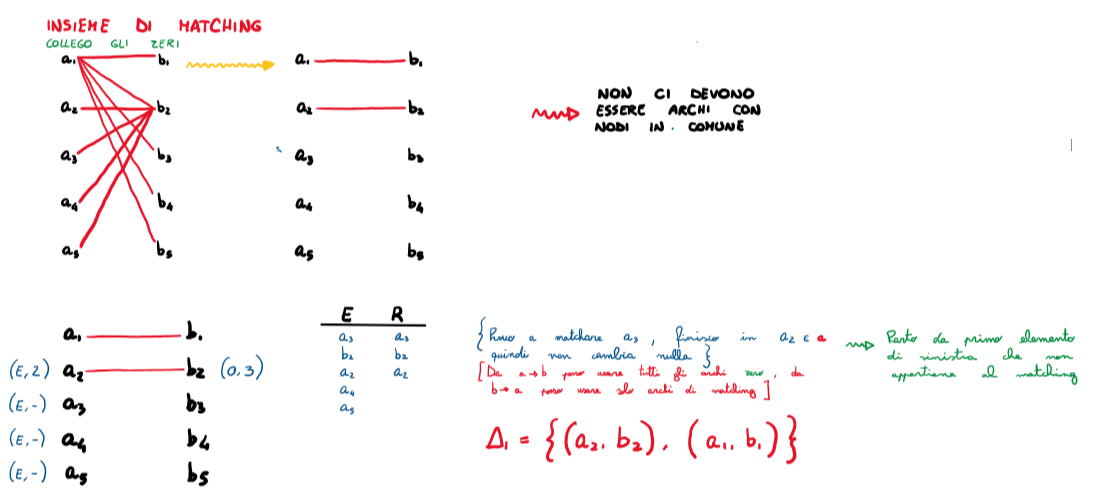 INSIEME DI MATCHING
COLLEGO GLI ZERI
a₁ b₁ a₁ b₁
a₂ b₂ a₂ b₂
a₃ b₃ a₃ b₃
a₄ b₄ a₄ b₄
a₅ b₅ a₅ b₅
NON CI DEVONO
ESSERE ARCHI CON
NODI IN COMUNE
a₁ b₁
(E,2) a₂ b₂ (0,3)
(E,-) a₃ b₃
(E,-) a₄ b₄
(E,-) a₅ b₅
E R
a₃ a₃
b₂ b₂
a₂ a₂
a₄
a₅
{ Provo a matchare a₃, finisco in a₂ ∈ a
quindi non cambia nulla }
[ Da a→b posso usare tutti gli archi zero, da
b→a posso usare solo archi di matching ]
Parto da primo elemento
di sinistra che non
appartiene al matching
Δ₁ = {(a₂, b₂), (a₁, b₁)}